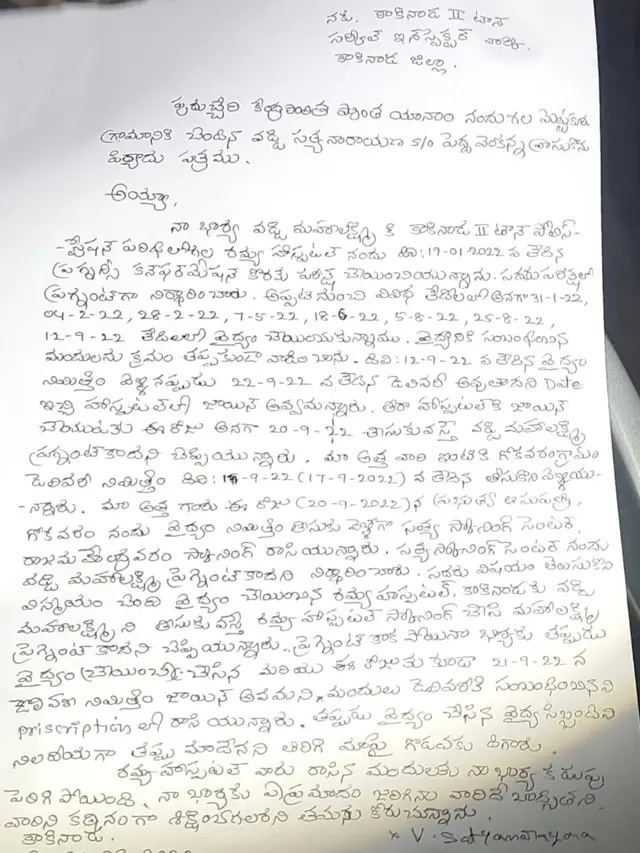 గౌ. కాకినాడ II టౌన్
సర్కిల్ ఇన్‌స్పెక్టర్ వారికి,
కాకినాడ జిల్లా.
పుదుచ్చేరి కేంద్రపాలిత ప్రాంత యానాం నందు గల మెట్టకూరు
గ్రామానికి చెందిన వడ్డి సత్యనారాయణ S/o పెద్ద వెంకన్న వ్రాసుకొను
ఫిర్యాదు పత్రము.
అయ్యా,
నా భార్య వడ్డి మహాలక్ష్మి కి కాకినాడ II టౌన్ పోలీస్-
-స్టేషన్ పరిధిలోగల రమ్య హాస్పటల్ నందు ది:19-01-2022 వ తేదిన
ప్రెగ్నెన్సీ కన్ఫర్మేషన్ కొరకు పరీక్ష చేయించియున్నాను. సదరు పరీక్షలో
ప్రెగ్నెంట్‌గా నిర్ధారించారు. అప్పటి నుంచి వివిధ తేదీలలో అనగా 31-1-22,
04-2-22, 28-2-22, 7-5-22, 18-6-22, 5-8-22, 25-8-22,
12-9-22 తేదీలలో వైద్యం చేయించుకున్నాము. వైద్యానికి సంబంధించిన
మందులను క్రమం తప్పకుండా వాడించాను. ది:12-9-22 వ తేదిన వైద్యం
నిమిత్తం వెళ్ళినప్పుడు 22-9-22 వ తేదిన డెలివరీ అవుతాదని Date
ఇచ్చి హాస్పటల్‌లో జాయిన్ అవ్వమన్నారు. తీరా హాస్పటల్‌కి జాయిన్
చేయుటకు ఈ రోజు అనగా 20-9-22 తీసుకువస్తే వడ్డి మహాలక్ష్మి
ప్రెగ్నెంట్ కాదని చెప్పియున్నారు. మా అత్త వారి ఇంటికి గోకవరం గ్రామం
డెలివరీ నిమిత్తం ది:17-9-22 (17-9-2022) వ తేదిన తీసుకుని వెళ్ళియు-
-న్నారు. మా అత్త గారు ఈ రోజు (20-9-2022) న ప్రభుత్వ ఆసుపత్రి,
గోకవరం నందు వైద్యం నిమిత్తం తీసుకు వెళ్ళగా సత్య స్కానింగ్ సెంటర్,
రాజమహేంద్రవరం స్కానింగ్ రాసియున్నారు. సత్య స్కానింగ్ సెంటర్ నందు
వడ్డి మహాలక్ష్మి ప్రెగ్నెంట్ కాదని నిర్ధారించారు. సదరు విషయం తెలుసుకుని
విస్మయం చెంది వైద్యం చేయించిన రమ్య హాస్పటల్, కాకినాడకు వడ్డి
మహాలక్ష్మి ని తీసుకు వస్తే రమ్య హాస్పటల్ స్కానింగ్ చేసి మహాలక్ష్మి
ప్రెగ్నెంట్ కాదని చెప్పియున్నారు. ప్రెగ్నెంట్ కాక పోయినా భార్యకు తప్పుడు
వైద్యం చేసిన మరియు ఈ రోజుకు కూడా 21-9-22 న
నిమిత్తం జాయిన్ అవమని, మందులు డెలివరీకి సంబంధించినవి
priscription లో రాసి యున్నారు. తప్పుడు వైద్యం చేసిన వైద్య సిబ్బందిని
నిలదీయగా తప్పు మాదేనని తిరిగి మాపై గొడవకు దిగారు.
రమ్య హాస్పటల్ వారు రాసిన మందులకు నా భార్య కడుపు
పెరిగి పోయింది. నా భార్యకు ఏ ప్రమాదం జరిగినా వారిదే బాధ్యతని-
వారిని కఠినంగా శిక్షించగలరని తమను కోరుచున్నాను.
కాకినాడ.
x V. Satyanarayana